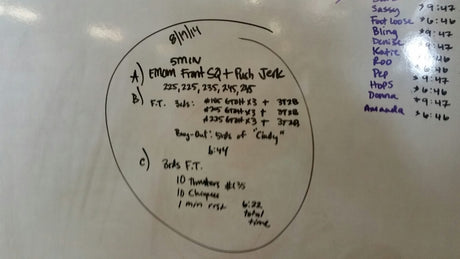 8/19/14
5MIN
A) Emom Front SQ + Push Jerk
225, 225, 235, 245, 245
B)
F.T. 3rds: #185 GTOH X3 + 3T2B
#205 GTOH X3 + 3T2B
#225 GTOH X3 + 3T2B
Buy-Out: 5rds of "Cindy"
6:44
C) 3rds F.T.
10 Thrusters #135
10 Chinups
1 min rest 6:22
total
time
Sassy *9:47
Foot Loose *6:46
Bling *9:47
Denise *9:47
Katie *6:46
Roo *6:46
Pep *9:47
HOPS *6:46
Donna *9:47
Amanda *6:46